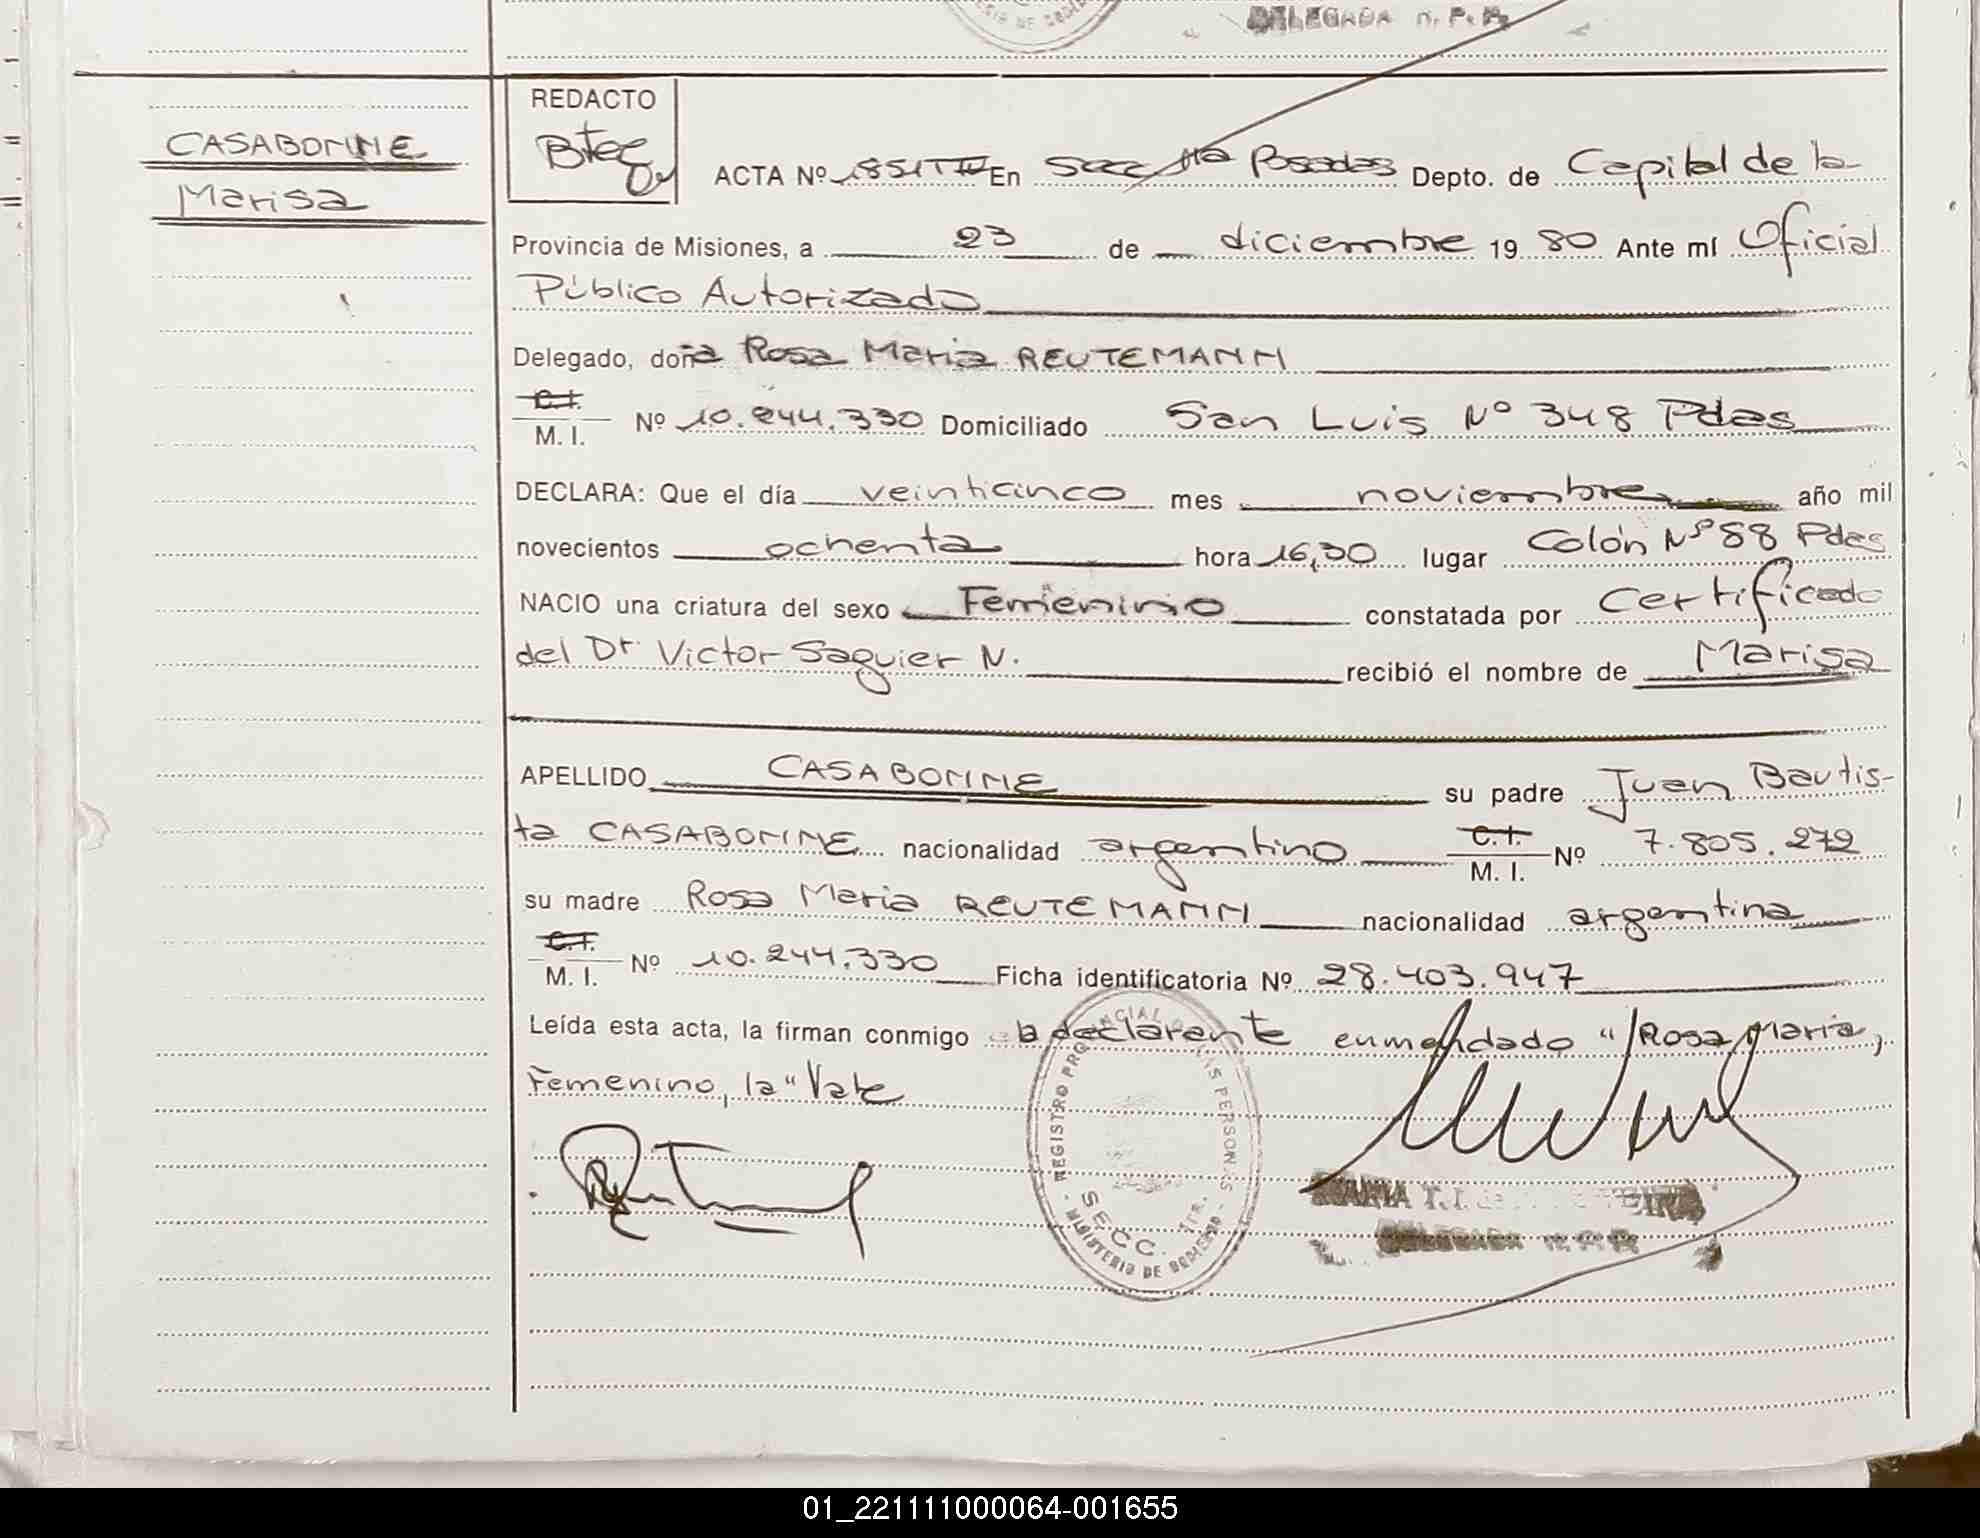 DELEGADA R. P. P.
CASABONNE
Marisa
REDACTO
ACTA Nº 1851 T IV En Secc 1ra Posadas Depto. de Capital de la
Provincia de Misiones, a 23 de diciembre 1980 Ante mí Oficial
Público Autorizado
Delegado, doña Rosa Maria REUTEMANN
C.I.
M. I. Nº 10.244.330 Domiciliado San Luis Nº 348 Pdas
DECLARA: Que el día veinticinco mes noviembre año mil
novecientos ochenta hora 16,30 lugar Colón Nº 88 Pdas
NACIO una criatura del sexo Femenino constatada por Certificado
del Dr Victor Saguier N. recibió el nombre de Marisa
APELLIDO CASABONNE su padre Juan Bautis-
ta CASABONNE nacionalidad argentino C.I. M. I. Nº 7.805.272
su madre Rosa Maria REUTEMANN nacionalidad argentina
C.I.
M. I. Nº 10.244.330 Ficha identificatoria Nº 28.403.947
Leída esta acta, la firman conmigo la declarante enmendado "Rosa Maria,
Femenino, la" Vale
REGISTRO PROVINCIAL DE LAS PERSONAS
SECC. 1ra.
MINISTERIO DE GOBIERNO
MARIA T.
DELEGADA R. P. P.
01_221111000064-001655